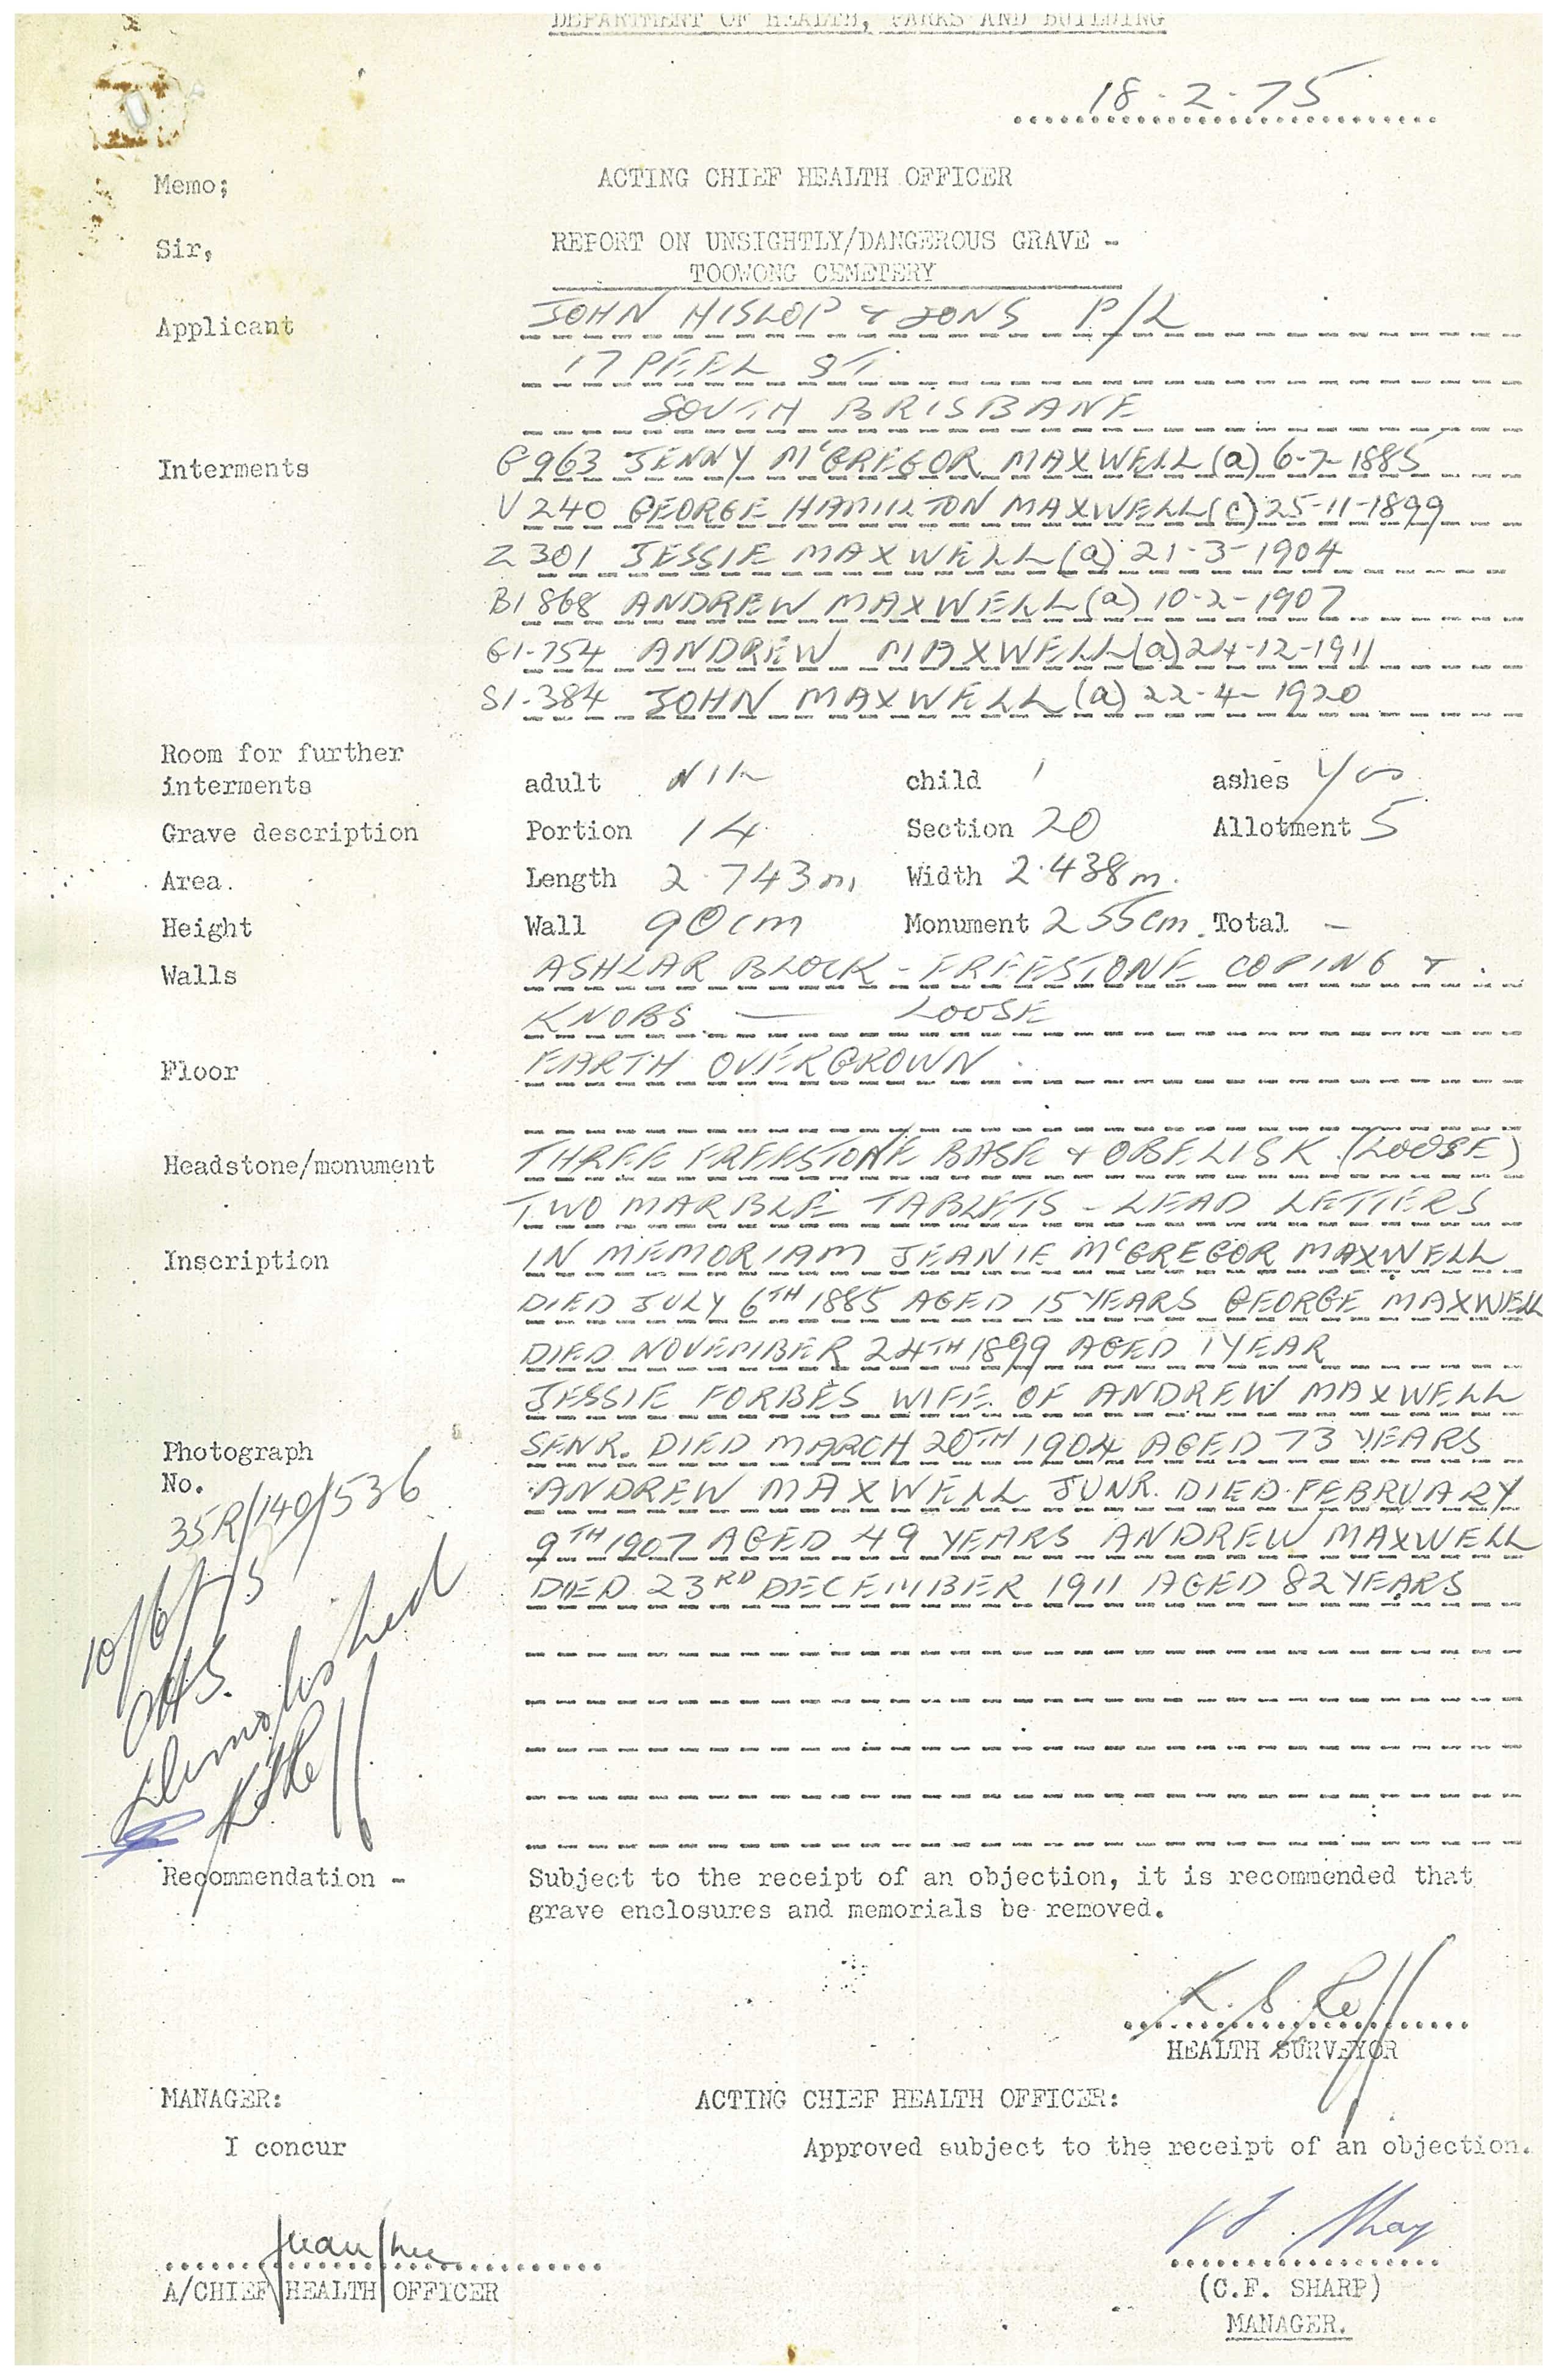 DEPARTMENT OF HEALTH, PARKS AND BUILDING
18-2-75
Memo; ACTING CHIEF HEALTH OFFICER
Sir, REPORT ON UNSIGHTLY/DANGEROUS GRAVE -
TOOWONG CEMETERY
Applicant JOHN HISLOP & SONS P/L
17 PEEL ST.
SOUTH BRISBANE
Interments G963 JENNY McGREGOR MAXWELL (a) 6-7-1885
V240 GEORGE HAMILTON MAXWELL (c) 25-11-1899
Z301 JESSIE MAXWELL (a) 21-3-1904
B1868 ANDREW MAXWELL (a) 10-2-1907
G1-754 ANDREW MAXWELL (a) 24-12-1911
S1-384 JOHN MAXWELL (a) 22-4-1920
Room for further
interments adult NIL child 1 ashes Yes
Grave description Portion 14 Section 20 Allotment 5
Area. Length 2.743m Width 2.438m.
Height Wall 90cm Monument 255cm. Total -
Walls ASHLAR BLOCK - FREESTONE COPING &
KNOBS — LOOSE
Floor EARTH OVERGROWN.
Headstone/monument THREE FREESTONE BASE & OBELISK (LOOSE)
TWO MARBLE TABLETS - LEAD LETTERS
Inscription IN MEMORIAM JEANIE McGREGOR MAXWELL
DIED JULY 6TH 1885 AGED 15 YEARS GEORGE MAXWELL
DIED NOVEMBER 24TH 1899 AGED 1 YEAR
JESSIE FORBES WIFE OF ANDREW MAXWELL
Photograph SENR. DIED MARCH 20TH 1904 AGED 73 YEARS
No. ANDREW MAXWELL JUNR. DIED FEBRUARY
35R/140/536
9TH 1907 AGED 49 YEARS ANDREW MAXWELL
DIED 23RD DECEMBER 1911 AGED 82 YEARS
10/6/75
Demolished
Recommendation - Subject to the receipt of an objection, it is recommended that
grave enclosures and memorials be removed.
K. S.
HEALTH SURVEYOR
MANAGER: ACTING CHIEF HEALTH OFFICER:
I concur Approved subject to the receipt of an objection.
A/CHIEF HEALTH OFFICER
(C.F. SHARP)
MANAGER.